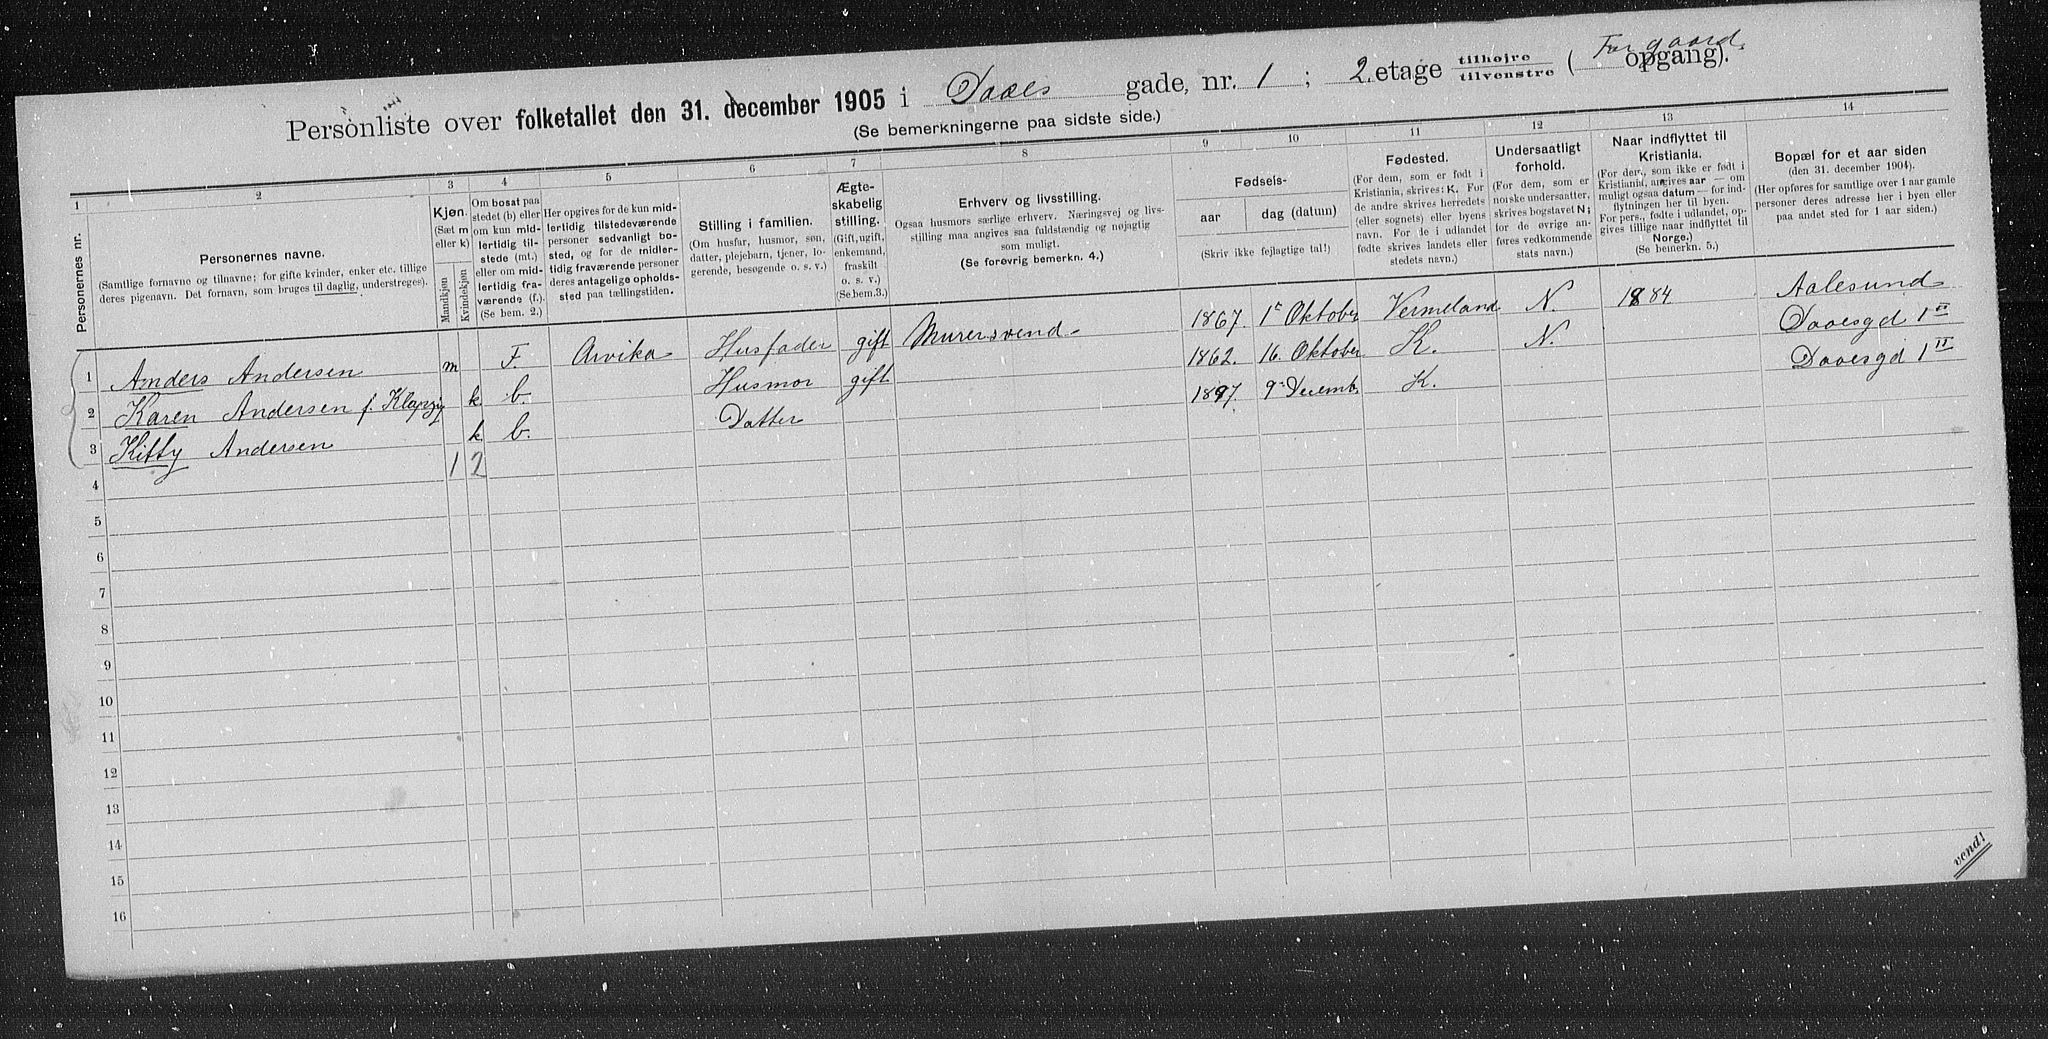 Personliste over folketallet den 31. december 1905 i Daaes gade, nr. 1 ; 2. etage tilhøjre tilvenstre ( Forgaard. opgang).
(Se bemerkningerne paa sidste side.)
1 2 3 4 5 6 7 8 9 10 11 12 13 14
Personernes nr.
Personernes navne.
(Samtlige fornavne og tilnavne; for gifte kvinder, enker etc. tillige
deres pigenavn. Det fornavn, som bruges til daglig, understreges).
Kjøn.
(Sæt m
eller k)
Mandkjøn
Kvindekjøn
Om bosat paa
stedet (b) eller
om kun mid-
lertidig til-
stede (mt.)
eller om mid-
lertidig fra-
værende (f.).
(Se bem. 2.)
Her opgives for de kun mid-
lertidig tilstedeværende
personer sedvanligt bo-
sted, og for de midler-
tidig fraværende personer
deres antagelige opholds-
sted paa tællingstiden.
Stilling i familien.
(Om husfar, husmor, søn,
datter, plejebarn, tjener, lo-
gerende, besøgende o. s. v.)
Ægte-
skabelig
stilling.
(Gift, ugift,
enkemand,
fraskilt
o. s. v.)
(Se bem.3.)
Erhverv og livsstilling.
Ogsaa husmors særlige erhverv. Næringsvej og livs-
stilling maa angives saa fuldstændig og nøjagtig
som muligt.
(Se forøvrig bemerkn. 4.)
Fødsels-
aar
dag (datum)
(Skriv ikke fejlagtige tal!)
Fødested.
(For dem, som er født i
Kristiania, skrives: K. For
de andre skrives herredets
(eller sognets) eller byens
navn. For de i udlandet
fødte skrives landets eller
stedets navn.)
Undersaatligt
forhold.
(For dem, som er
norske undersaatter,
skrives bogstavet N;
for de øvrige an-
føres vedkommende
stats navn.)
Naar indflyttet til
Kristiania.
(For dem, som ikke er født i
Kristiania, angives aar — om
muligt ogsaa datum — for ind-
flytningen her til byen.
For pers., fødte i udlandet, op-
gives tillige naar indflyttet til
Norge.)
(Se bemerkn. 5.)
Bopæl for et aar siden
(den 31. december 1904).
(Her opføres for samtlige over 1 aar gamle
personer deres adresse her i byen eller
paa andet sted for 1 aar siden.)
1 Anders Andersen m F. Arvika Husfader gift Murersvend 1867. 1e Oktober Vermeland N. 1884 Aalesund
2 Karen Andersen f. k b. Husmor gift 1862. 16. Oktober K. N. Daaesgd 1 II
3 Kitty Andersen k b. Datter 1897. 9de Decemb. K. Daaesgd 1 II
4 1 2
5
6
7
8
9
10
11
12
13
14
15
16
vend!